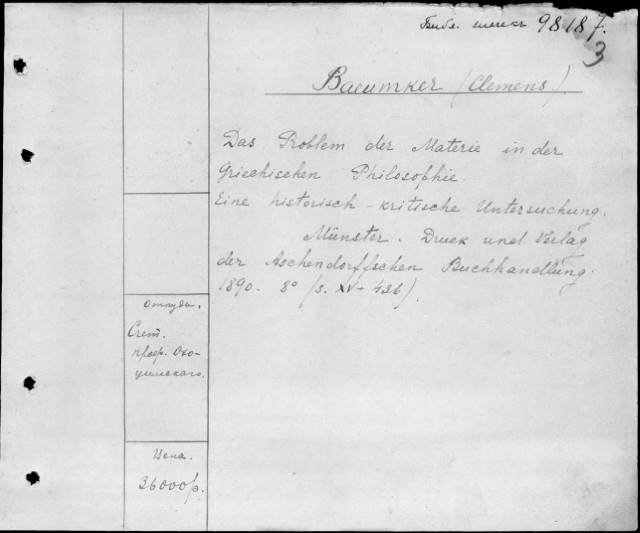 Библ. 98187.
3
Baeumker (Clemens).
Das Problem der Materie in der
Griechischen Philosophie.
Eine historisch-kritische Untersuchung.
Münster. Druck und Verlag
der Aschendorffschen Buchhandlung.
1890. 8° (s. XV + 436).
Откуда.
Счет.
проф.
Цена.
36000р.